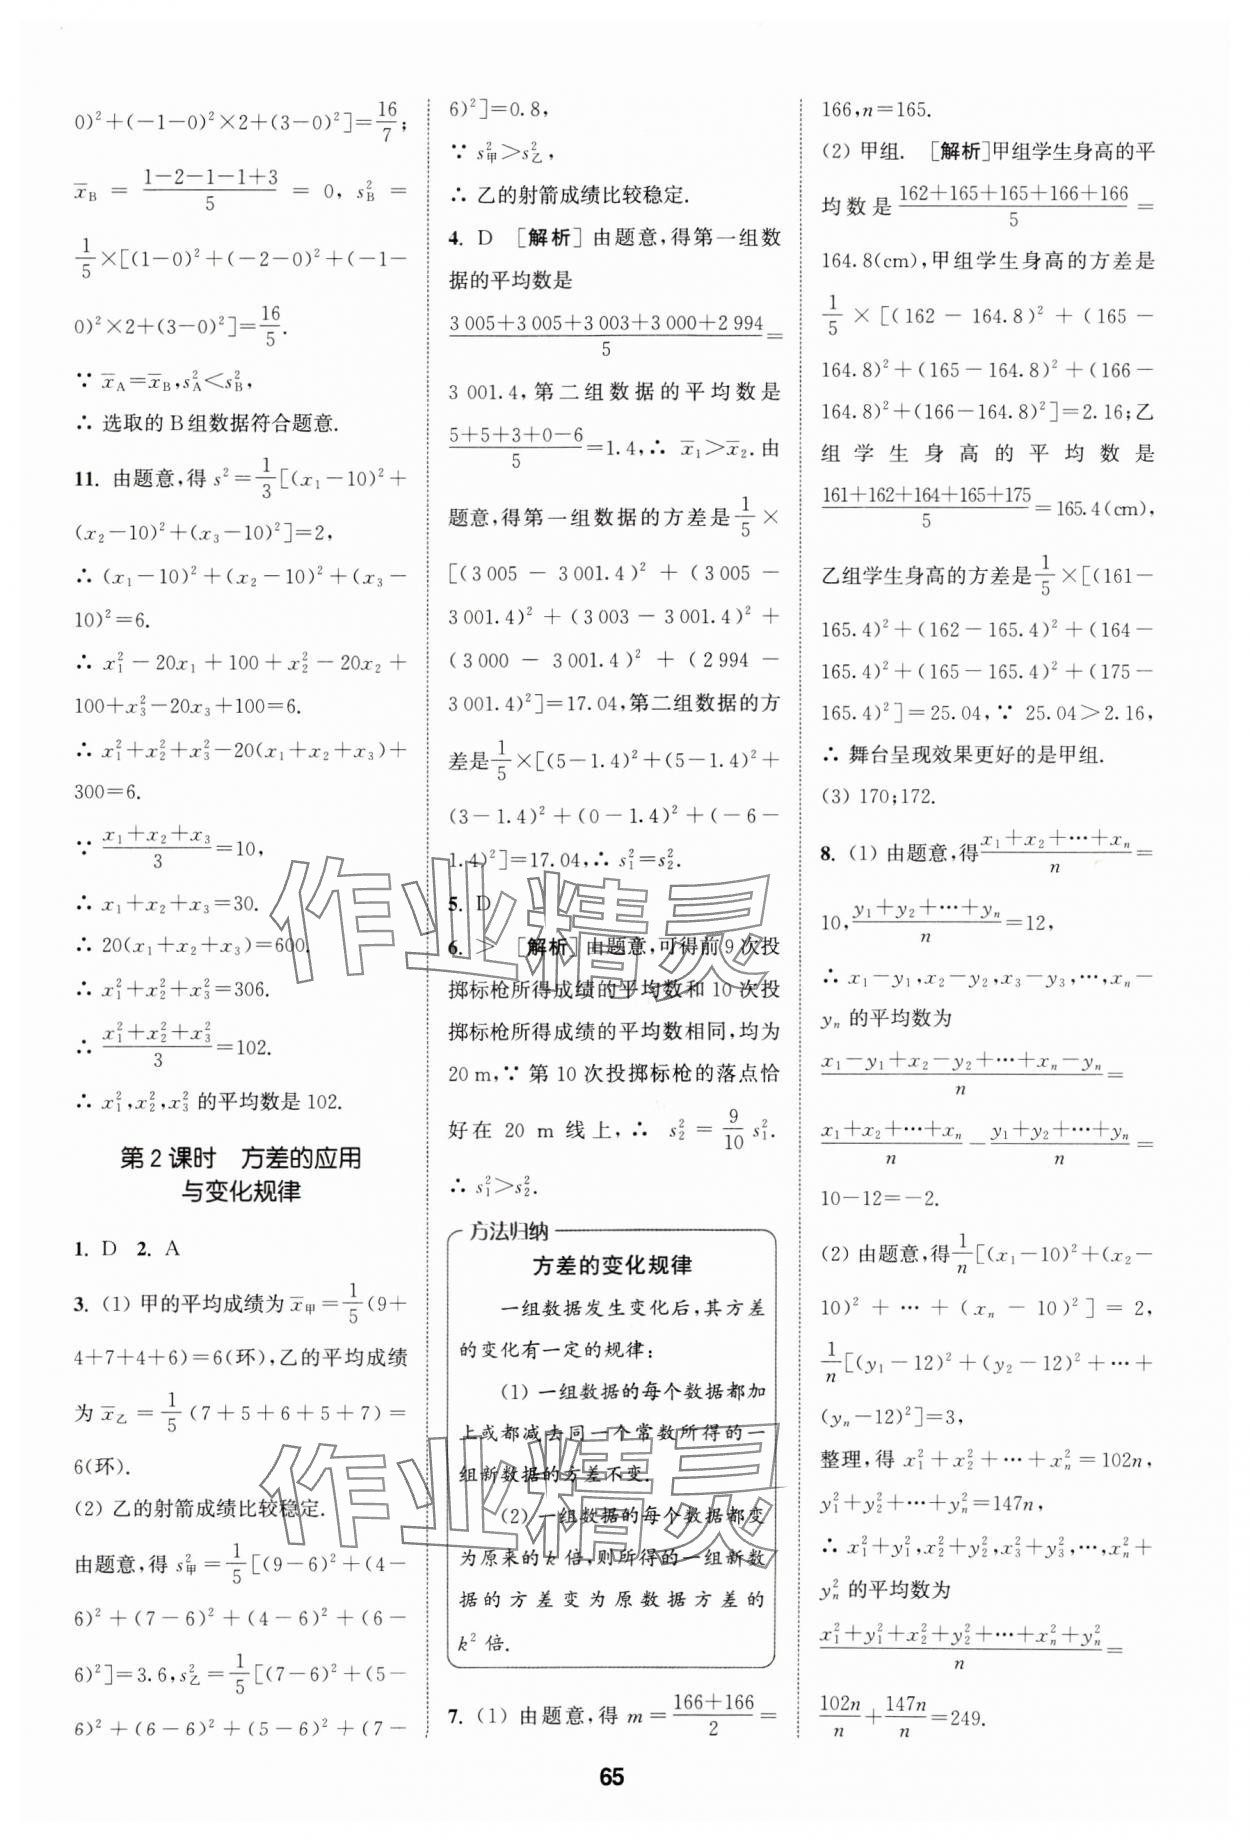 0)²+(-1-0)²×2+(3-0)²]=16/7;
x̄_B = (1-2-1-1+3)/5 = 0, s²_B =
1/5×[(1-0)²+(-2-0)²+(-1-
0)²×2+(3-0)²]=16/5.
∵ x̄_A=x̄_B,s²_A<s²_B,
∴ 选取的B组数据符合题意.
11. 由题意,得 s²=1/3[(x₁-10)²+
(x₂-10)²+(x₃-10)²]=2,
∴ (x₁-10)²+(x₂-10)²+(x₃-
10)²=6.
∴ x₁²-20x₁+100+x₂²-20x₂+
100+x₃²-20x₃+100=6.
∴ x₁²+x₂²+x₃²-20(x₁+x₂+x₃)+
300=6.
∵ (x₁+x₂+x₃)/3=10,
∴ x₁+x₂+x₃=30.
∴ 20(x₁+x₂+x₃)=600.
∴ x₁²+x₂²+x₃²=306.
∴ (x₁²+x₂²+x₃²)/3=102.
∴ x₁²,x₂²,x₃² 的平均数是 102.
第2课时 方差的应用
与变化规律
1. D 2. A
3. (1) 甲的平均成绩为 x̄甲=1/5(9+
4+7+4+6)=6(环),乙的平均成绩
为 x̄乙=1/5(7+5+6+5+7)=
6(环).
(2) 乙的射箭成绩比较稳定.
由题意,得 s²甲=1/5[(9-6)²+(4-
6)²+(7-6)²+(4-6)²+(6-
6)²]=3.6,s²乙=1/5[(7-6)²+(5-
6)²+(6-6)²+(5-6)²+(7-
6)²]=0.8,
∵ s²甲>s²乙,
∴ 乙的射箭成绩比较稳定.
4. D [解析]由题意,得第一组数
据的平均数是
(3 005+3 005+3 003+3 000+2 994)/5=
3 001.4,第二组数据的平均数是
(5+5+3+0-6)/5=1.4,∴ x̄₁>x̄₂.由
题意,得第一组数据的方差是1/5×
[(3 005-3 001.4)²+(3 005-
3 001.4)²+(3 003-3 001.4)²+
(3 000-3 001.4)²+(2 994-
3 001.4)²]=17.04,第二组数据的方
差是1/5×[(5-1.4)²+(5-1.4)²+
(3-1.4)²+(0-1.4)²+(-6-
1.4)²]=17.04,∴ s₁²=s₂².
5. D
6. > [解析]由题意,可得前9次投
掷标枪所得成绩的平均数和10次投
掷标枪所得成绩的平均数相同,均为
20 m,∵ 第10次投掷标枪的落点恰
好在 20 m 线上,∴ s₂²=9/10 s₁².
∴ s₁²>s₂².
方法归纳
方差的变化规律
一组数据发生变化后,其方差
的变化有一定的规律:
(1) 一组数据的每个数据都加
上或都减去同一个常数所得的一
组新数据的方差不变.
(2) 一组数据的每个数据都变
为原来的k倍,则所得的一组新数
据的方差变为原数据方差的
k² 倍.
7. (1) 由题意,得 m=(166+166)/2=
166,n=165.
(2) 甲组. [解析]甲组学生身高的平
均数是(162+165+165+166+166)/5=
164.8(cm),甲组学生身高的方差是
1/5×[(162-164.8)²+(165-
164.8)²+(165-164.8)²+(166-
164.8)²+(166-164.8)²]=2.16;乙
组学生身高的平均数是
(161+162+164+165+175)/5=165.4(cm),
乙组学生身高的方差是1/5×[(161-
165.4)²+(162-165.4)²+(164-
165.4)²+(165-165.4)²+(175-
165.4)²]=25.04,∵ 25.04>2.16,
∴ 舞台呈现效果更好的是甲组.
(3) 170;172.
8. (1) 由题意,得(x₁+x₂+…+xₙ)/n=
10,(y₁+y₂+…+yₙ)/n=12,
∴ x₁-y₁,x₂-y₂,x₃-y₃,…,xₙ-
yₙ 的平均数为
(x₁-y₁+x₂-y₂+…+xₙ-yₙ)/n=
(x₁+x₂+…+xₙ)/n-(y₁+y₂+…+yₙ)/n=
10-12=-2.
(2) 由题意,得1/n[(x₁-10)²+(x₂-
10)²+…+(xₙ-10)²]=2,
1/n[(y₁-12)²+(y₂-12)²+…+
(yₙ-12)²]=3,
整理,得 x₁²+x₂²+…+xₙ²=102n,
y₁²+y₂²+…+yₙ²=147n,
∴ x₁²+y₁²,x₂²+y₂²,x₃²+y₃²,…,xₙ²+
yₙ² 的平均数为
(x₁²+y₁²+x₂²+y₂²+…+xₙ²+yₙ²)/n=
102n/n+147n/n=249.
65
作业精灵
作业精灵